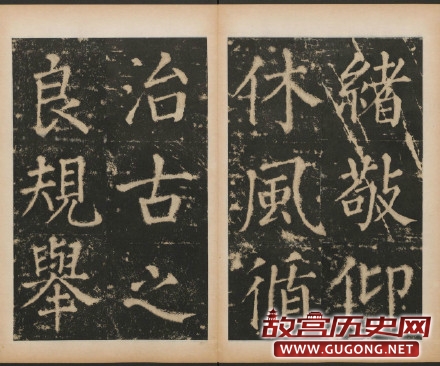 緒敬仰
休風循
治古之
良規舉
故宫历史网
WWW.GUGONG.NET